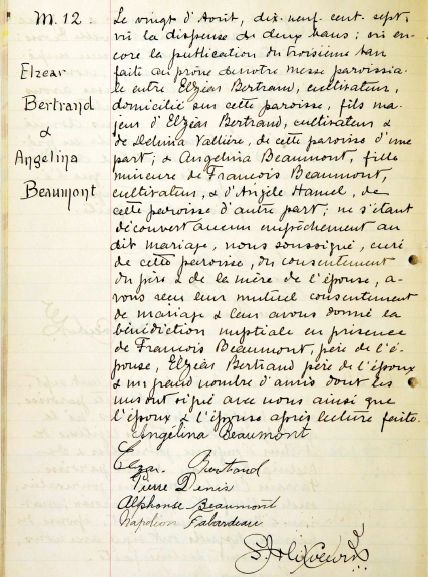 M. 12
Elzear
Bertrand
&
Angelina
Beaumont
Le vingt d'Août, dix-neuf-cent-sept,
vû la dispense de deux bans; vû en-
core la publication du troisième ban
faite au prône de notre messe paroissia-
le entre Elzéar Bertrand, cultivateur,
domicilié sur cette paroisse, fils ma-
jeur d'Elzéar Bertrand, cultivateur &
de Delvina Vallière, de cette paroisse d'une
part; & Angelina Beaumont, fille
mineure de Francois Beaumont,
cultivateur, & d'Angèle Hamel, de
cette paroisse d'autre part; ne s'étant
découvert aucun empêchement au
dit mariage, nous soussigné, curé
de cette paroisse, du consentement
du père & de la mère de l'épouse, a-
vons reçu leur mutuel consentement
de mariage & leur avons donné la
bénédiction nuptiale en présence
de Francois Beaumont, père de l'é-
pouse, Elzéar Bertrand père de l'époux
& un grand nombre d'amis dont les
uns ont signé avec nous ainsi que
l'époux & l'épouse après lecture faite.
Angélina Beaumont
Elzar. Bertrand
Pierre Denis
Alphonse Beaumont
Napoléon Falardeau